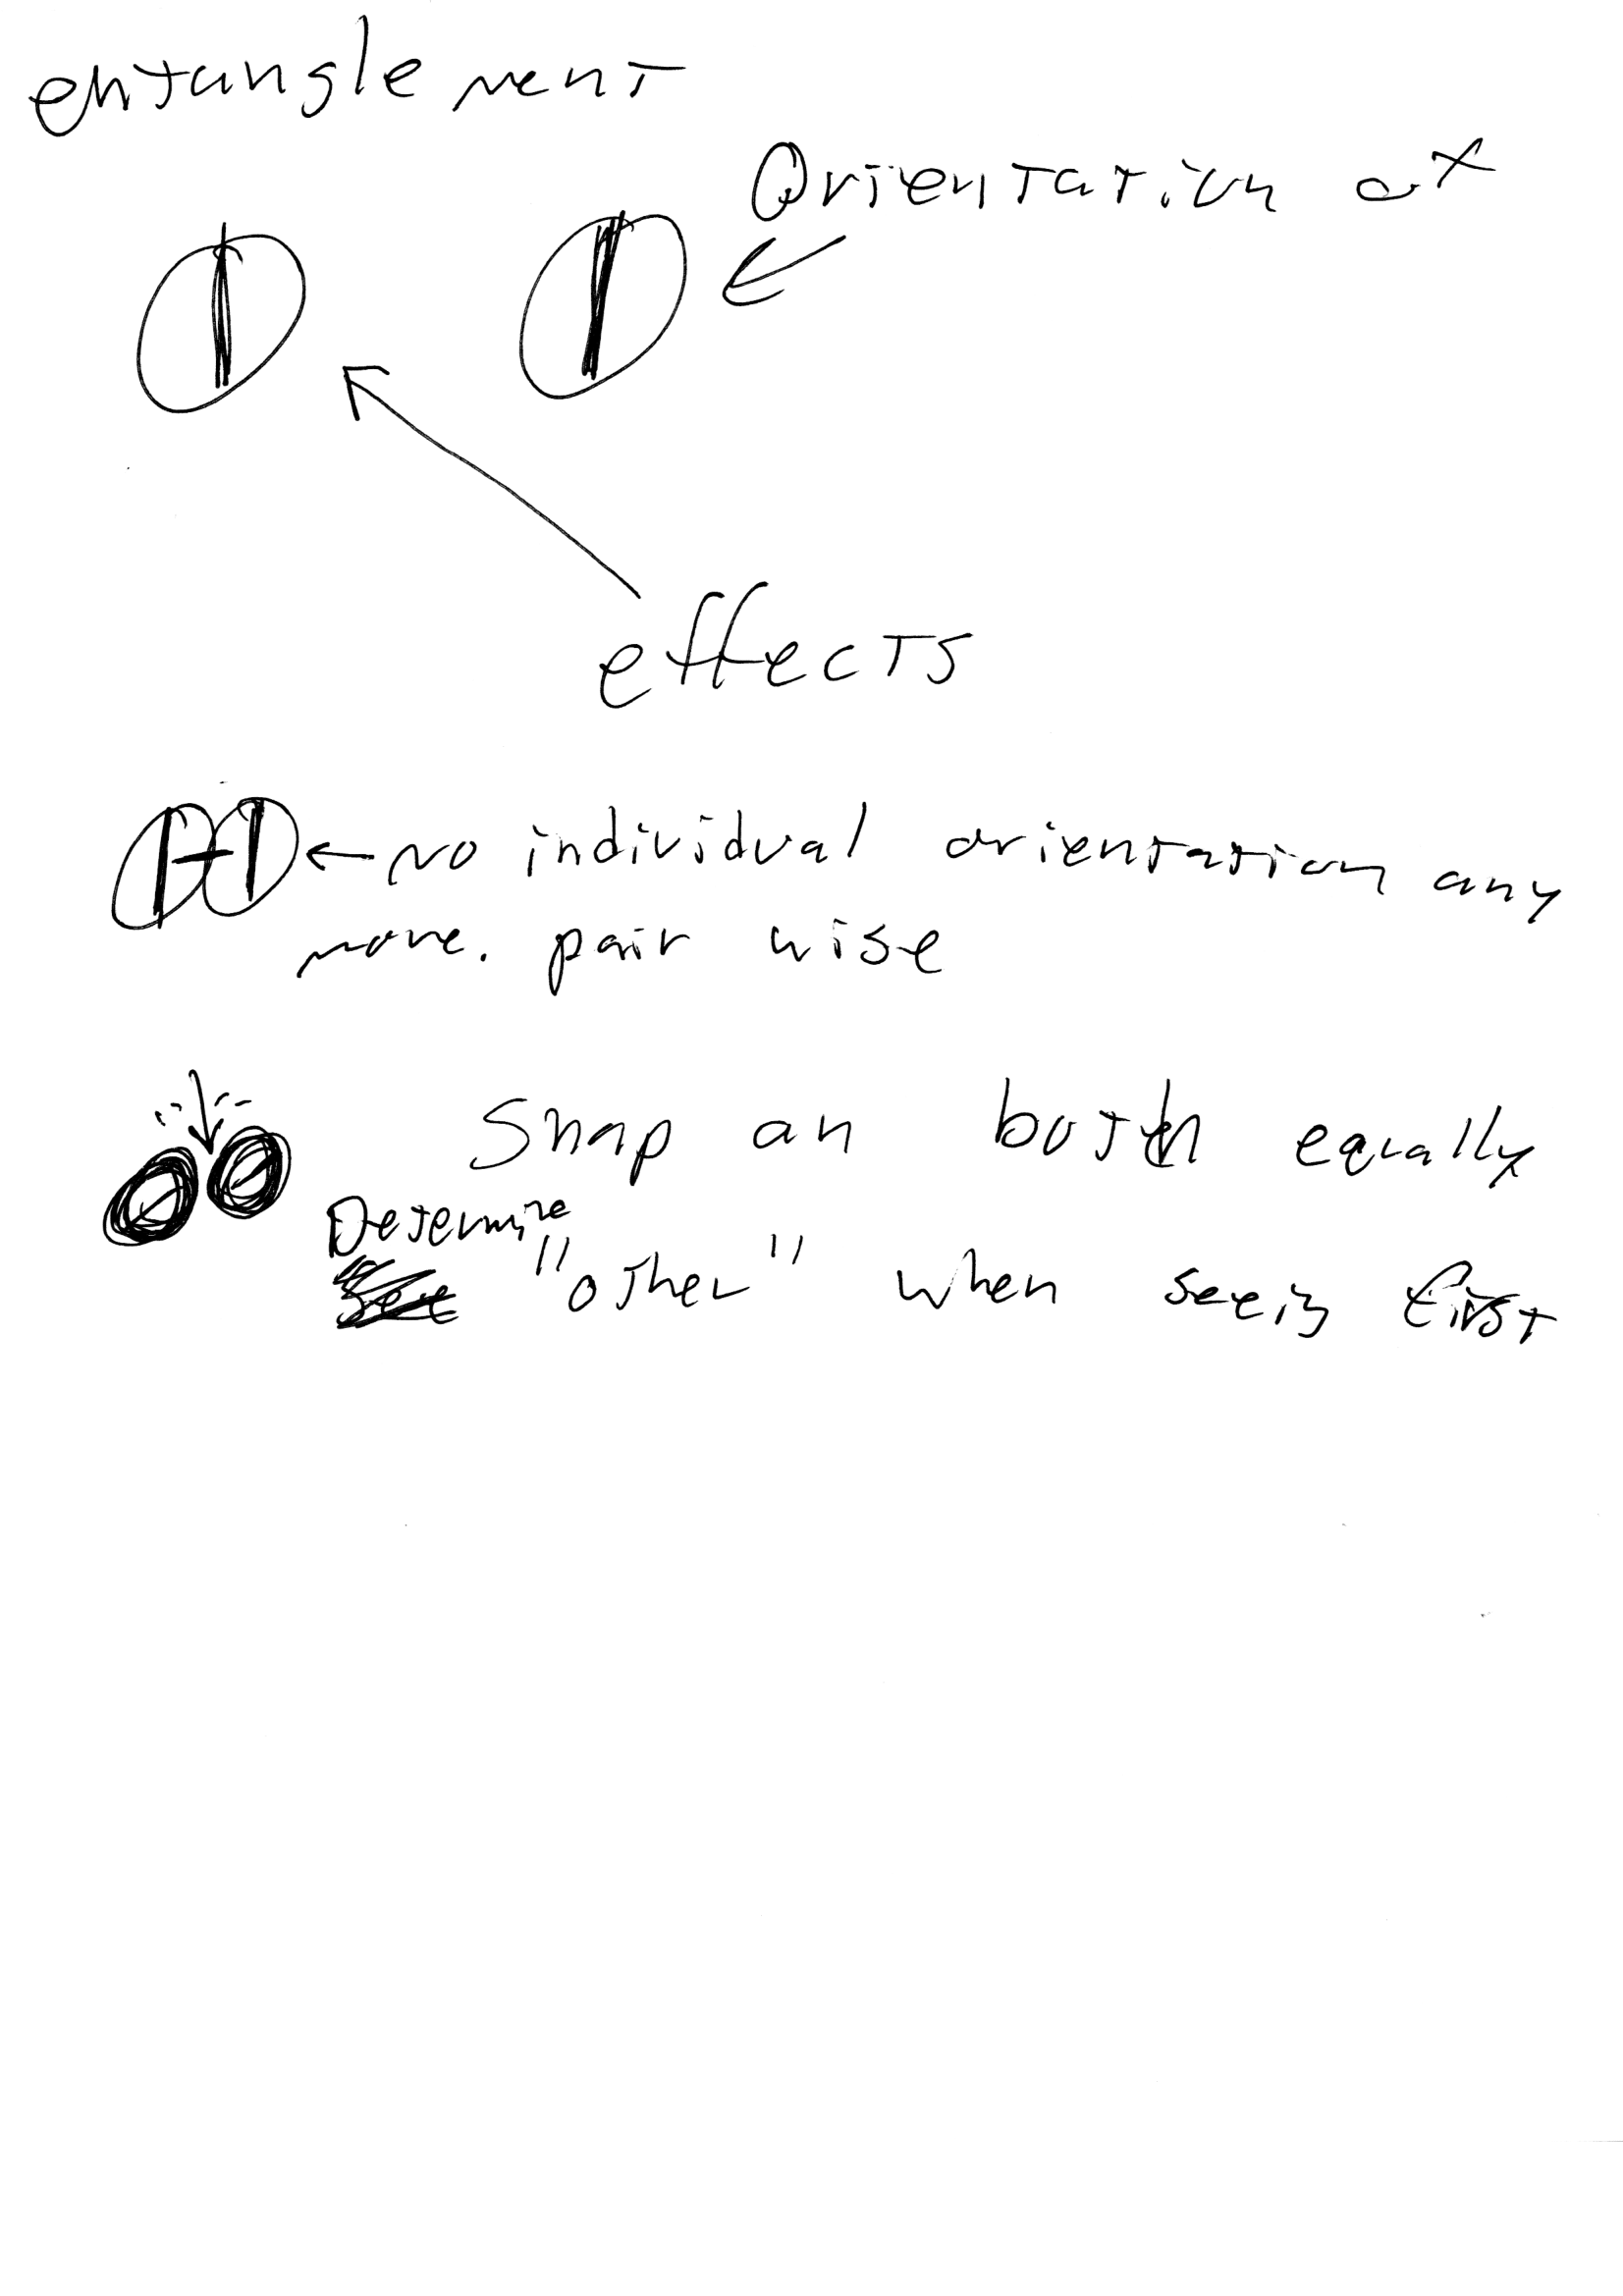 entanglement
Orientation of
effects
no individual orientation any
more. pair wise
Snap on both equally
Determine
"other" when seeing first